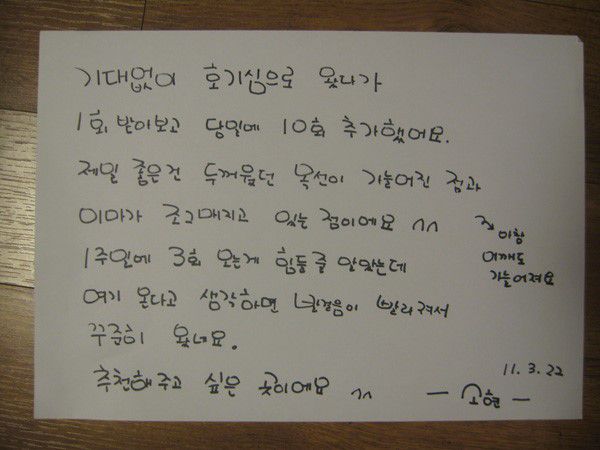 기대없이 호기심으로 왔다가
1회 받아보고 당일에 10회 추가했어요.
제일 좋은건 두꺼웠던 목선이 가늘어진 점과
이마가 조그매지고 있는 점이에요 ^^
↘ 이항
어깨도
가늘어져요
1주일에 3회 오는게 힘들줄 알았는데
여기 온다고 생각하면 발걸음이 빨라져서
꾸준히 왔네요.
추천해주고 싶은 곳이에요 ^^
11. 3. 22
- 소현 -